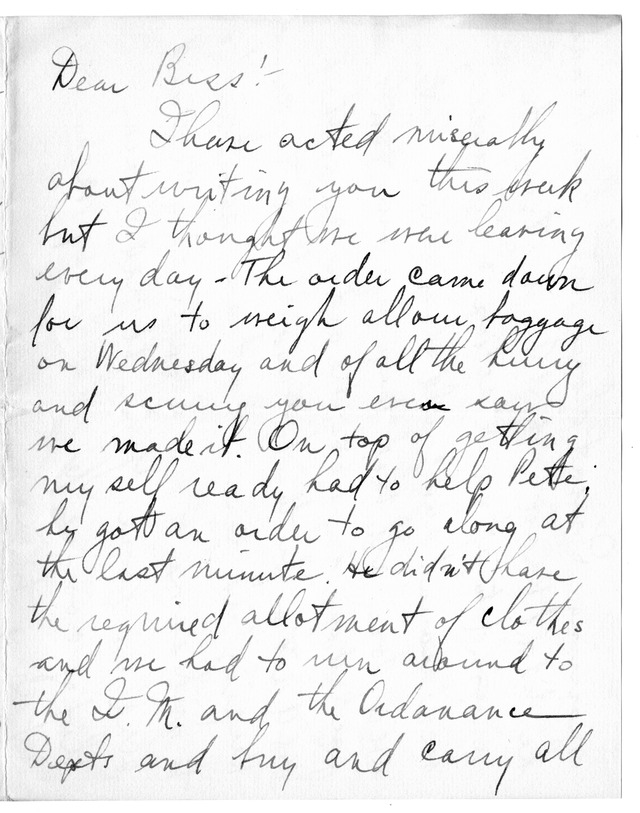 Dear Biss!-
I have acted miserably
about writing you this week
but I thought we were leaving
every day - The order came down
for us to weigh all our baggage
on Wednesday and of all the hurry
and scurry you ever saw
we made it. On top of getting
my self ready had to help Pette;
he got an order to go along at
the last minute. He didn't have
the required allotment of clothes
and we had to run around to
the Q. M. and the Ordanance
Depts and buy and carry all